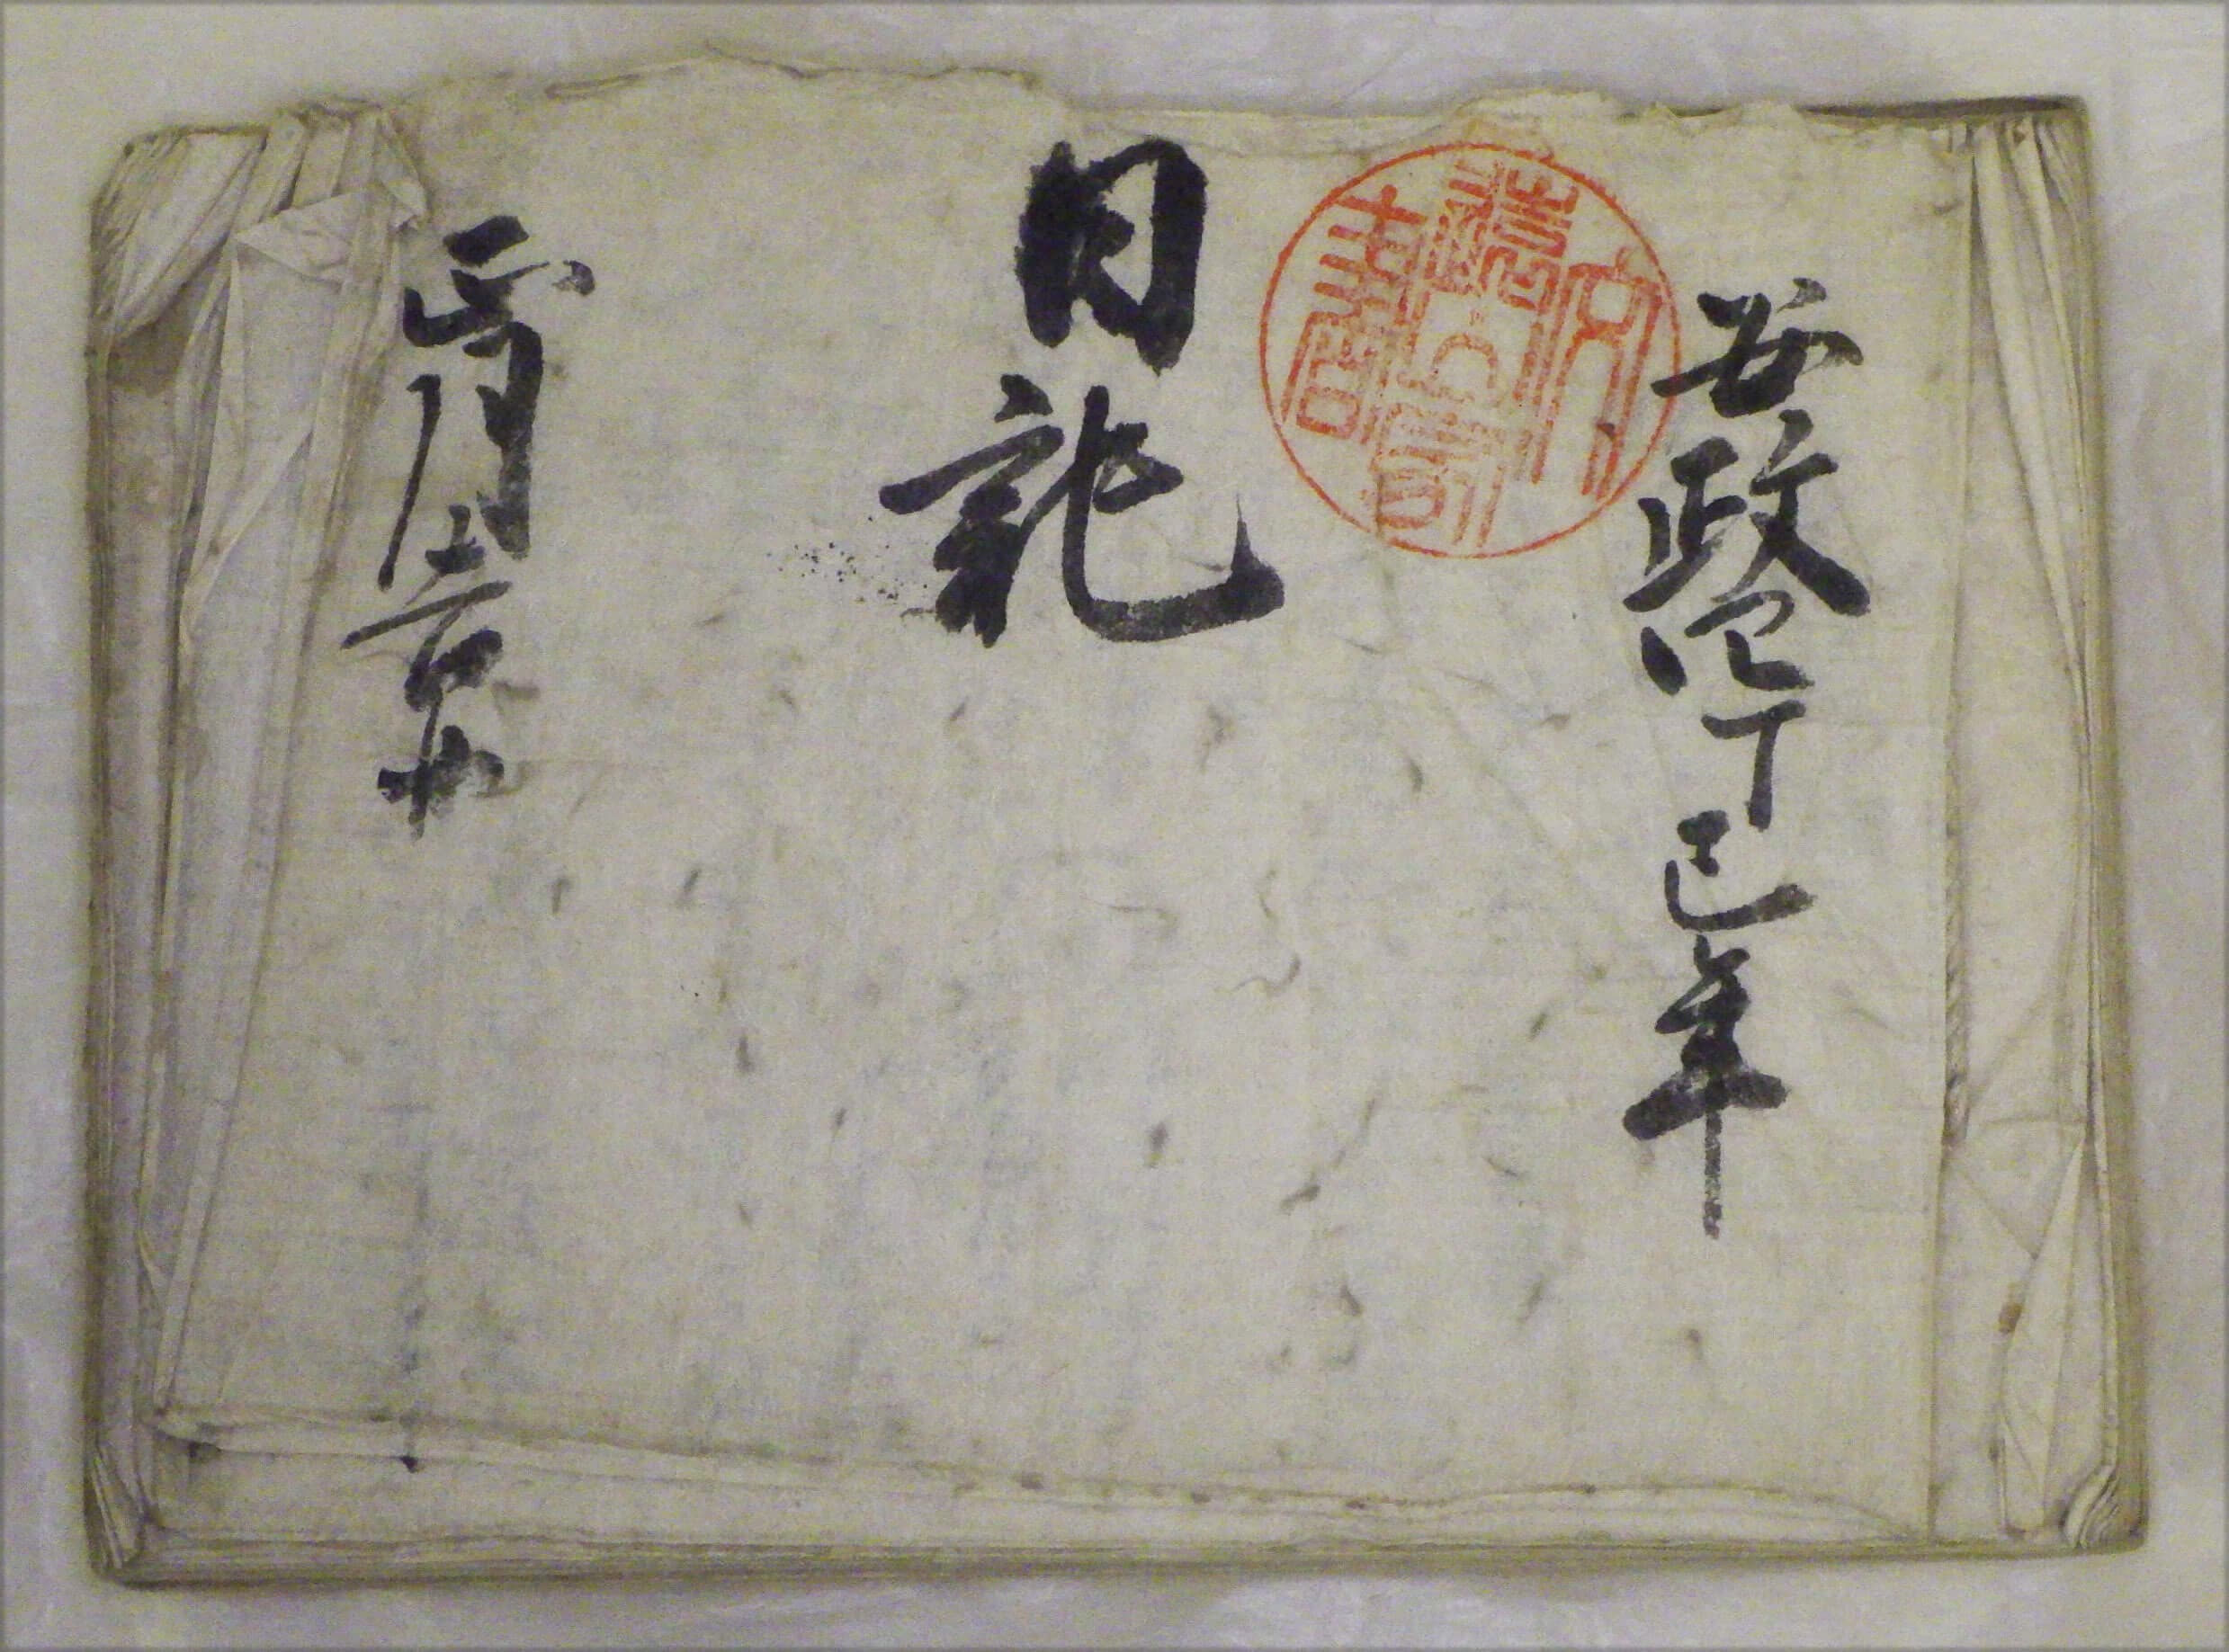 安政四丁巳年
日記
正月吉日